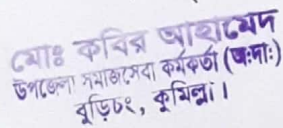 মোঃ কবির আহাম্মেদ
উপজেলা সমাজসেবা কর্মকর্তা (অঃদাঃ)
বুড়িচং, কুমিল্লা।